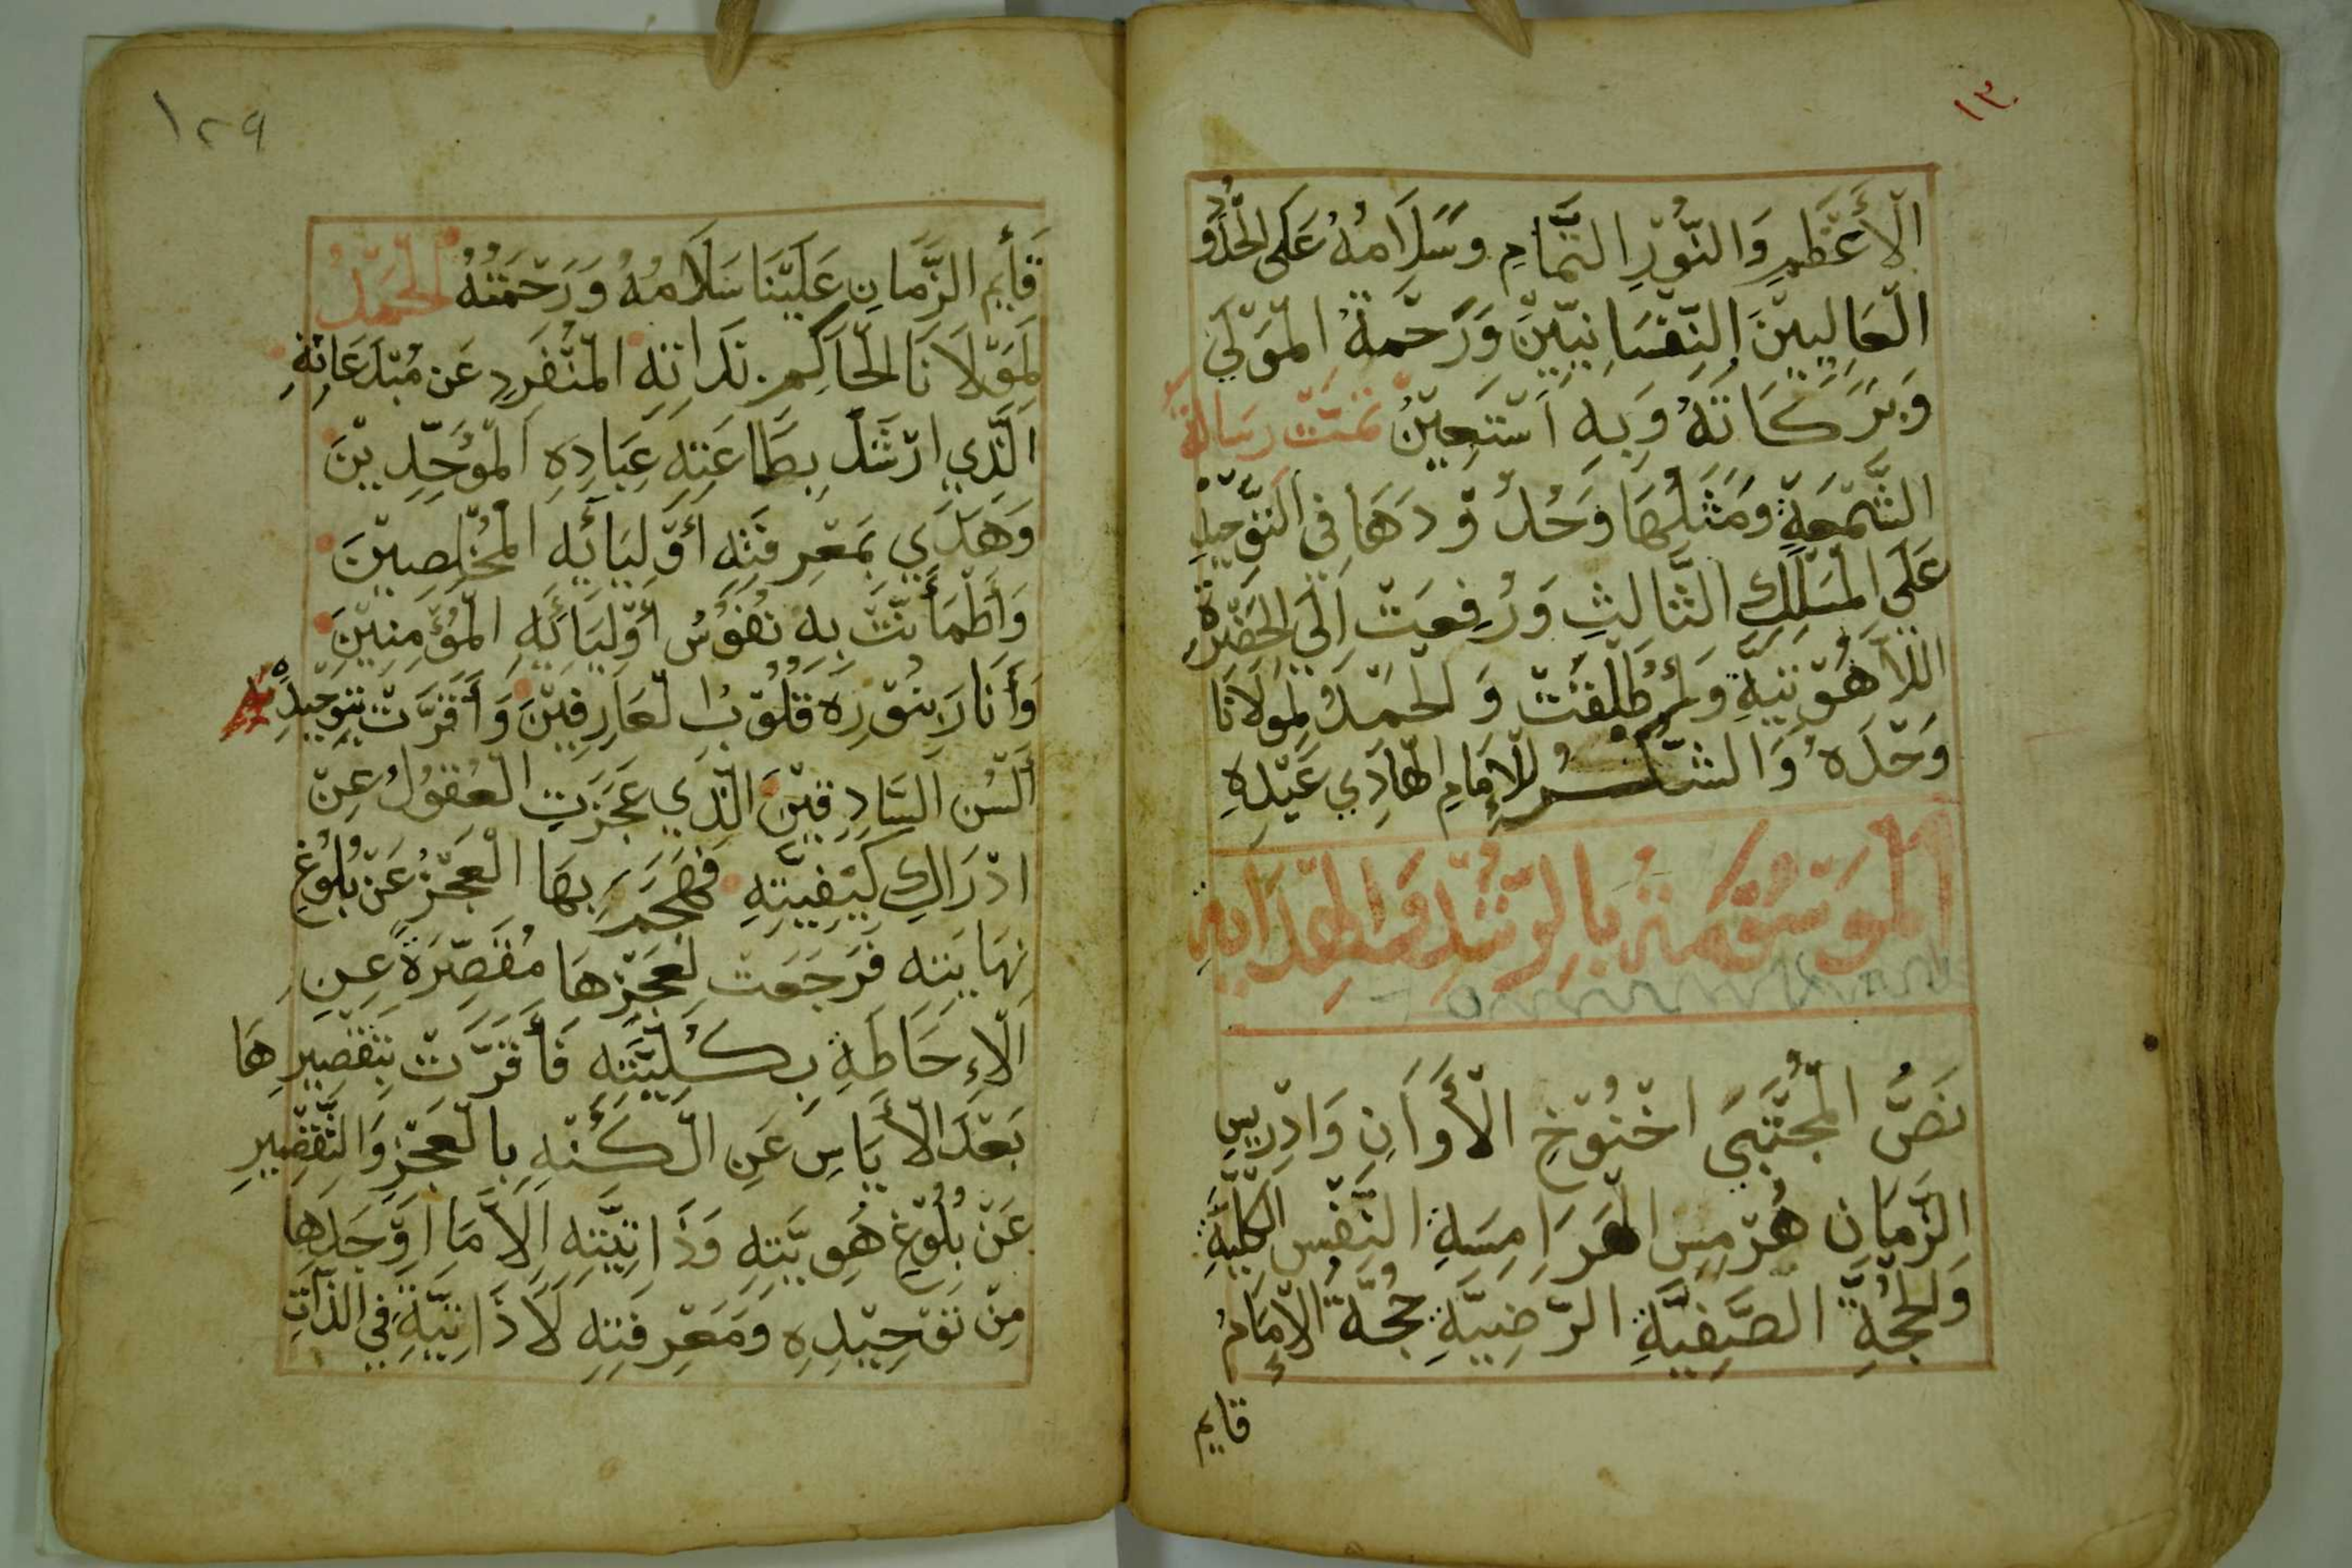 ١٣٠
الْأَعْظَمِ وَالنُّوْرِ التَّمَامِ وَسَلَامُهُ عَلَى الْحُدُوْدِ
الْعَالِيِيْنَ النَّفْسَانِيِّيْنَ وَرَحْمَةُ الْمَوْلَى
وَبَرَكَاتَهُ وَبِهِ اَسْتَعِيْنُ تَمَّتْ رِسَالَةُ
الشَّمْعَةِ وَمَثَلُهَا وَحُدُوْدَهَا فِي التَّوْحِيْدِ
عَلَى الْمَسْلَكِ الثَّالِثِ وَرُفِعَتْ اِلَى الْحَضْرَةِ
اللَّاهُوْتِيَّةِ وَأُطْلِقَتْ وَالْحَمْدُ لِمَوْلَانَا
وَحْدَهُ وَالشُّكْرُ لِلْإِمَامِ الْهَادِي عَبْدِهِ
الْمَوْسُوْمَةُ بِالرُّشْدِ وَالْهِدَايَةِ
نَصُّ الْمُجْتَبَى اخْنُوْخِ الْأَوَانِ وَادْرِيسِ
الزَّمَانِ هُرْمِسِ الْهَرَامِسَةِ النَّفْسِ الْكُلِّيَّةِ
وَالْحُجَّةِ الصَّفِيَّةِ الرَّضِيَّةِ حُجَّةُ الْإِمَامِ
قايم
١٢٩
قَأيِمِ الزَّمَانِ عَلَيْنَا سَلَامُهُ وَرَحْمَتُهُ الْحَمْدُ
لِمَوْلَانَا الْحَاكِمِ بَذَاتِهِ الْمُنْفَرِدِ عَن مُبْتَدَعَاتِهِ
الَّذِي ارْشَدَ بِطَاعَتِهِ عِبَادِهِ الْمُوَحِّدِيْنَ
وَهَدَى بِمَعْرِفَتِهِ أَوْلِيَائِهِ الْمُخْلِصِيْنَ
وَأَطْمَأَنَّتْ بِهِ نُفُوْسُ أَوْلِيَائِهِ الْمُؤْمِنِيْنَ
وَأَنَارَ بِنُوْرِهِ قُلُوْبُ الْعَارِفِيْنَ وَأَقَرَّتْ بِتَوْحِيْدِهِ
أَلْسُن السَّادِقِيْنَ الَّذِي عَجَزَتِ الْعُقُوْلُ عِنْ
ادْرَاكِ كَيْفِيَّتِهِ فَهَجَمَ بِهَا الْعَجْزُ عَنْ بُلُوْغِ
نِهَايَتِهِ فَرَجَعَتْ لِعَجْزِهَا مُقَصِّرَةً عَنِ
الْإِحَاطَةِ بِكُلِّيَّتِهِ فَأَقَرَّتْ بِتَقْصِيرِهَا
بَعْدَ الْأَيَاسِ عَنِ الْكُنْهِ بِالْعَجْزِ وَالتَّقْصِيرِ
عَنْ بُلُوْغِ هَوِيَّتِهِ وَذَاتِيَّتِهِ اِلَّا مَا اَوْجَدَهَا
مِنْ تَوْحِيْدِهِ وَمَعْرِفَتِهِ لَا ذَاتِيَّةِ فِي الذَّاتِ